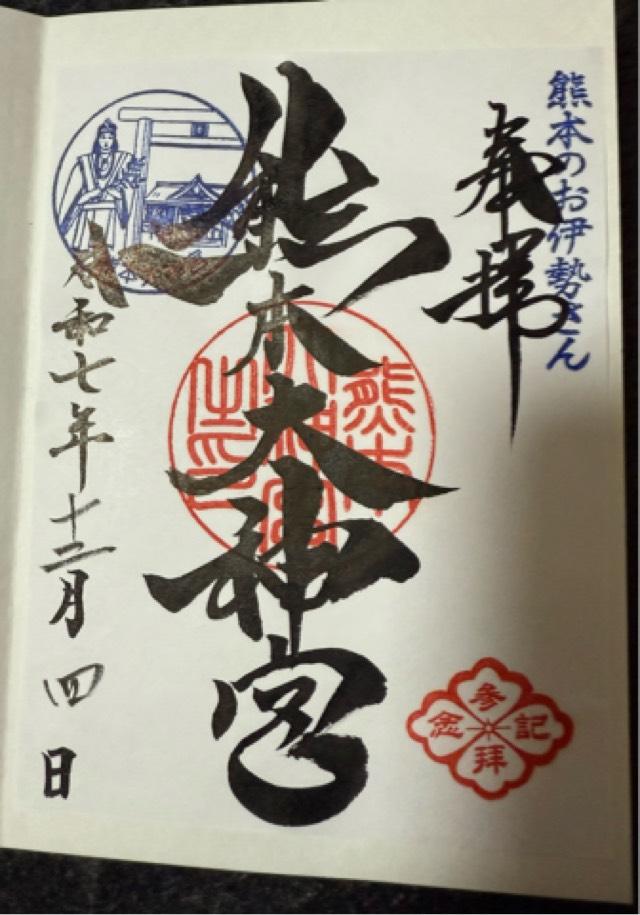 熊本のお伊勢さん
奉拝
熊本大神宮
令和七年十二月四日
参拝記念